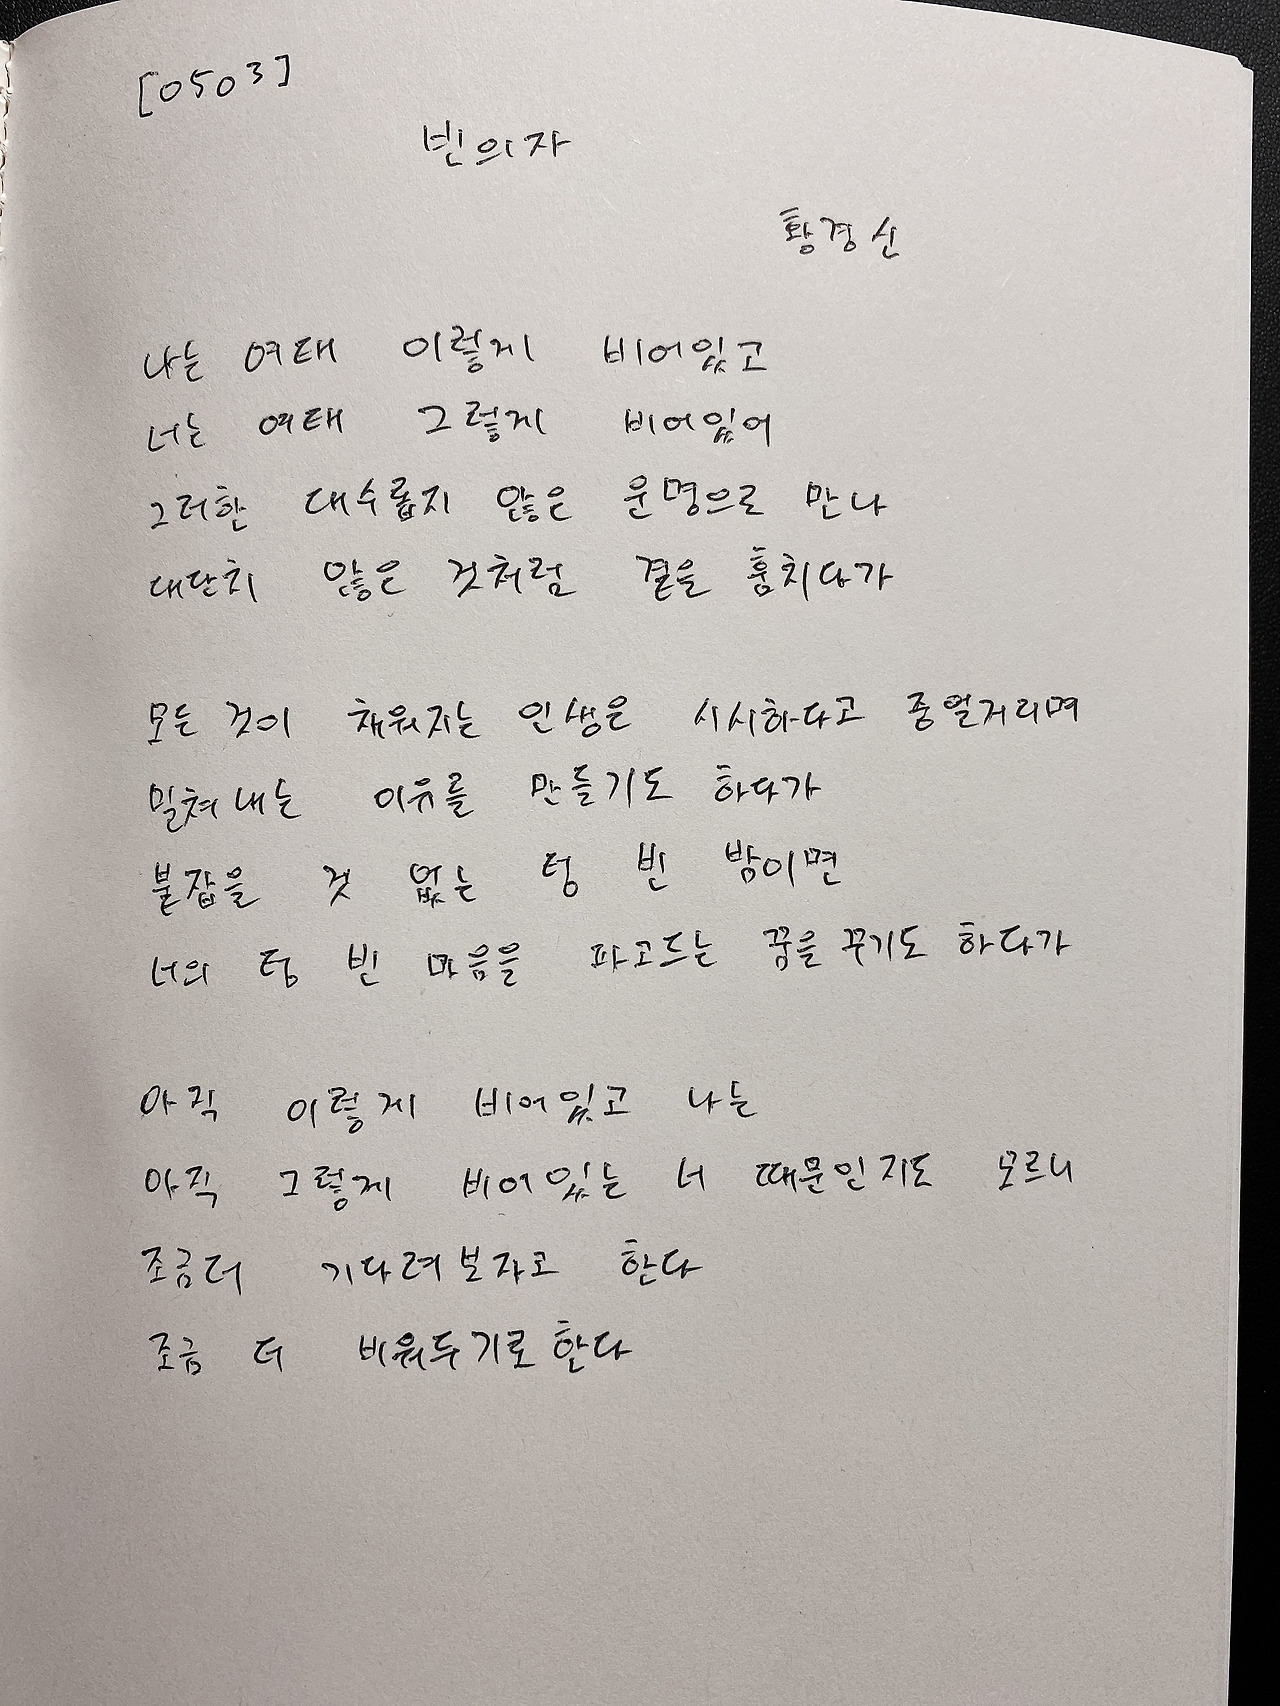 [0503]
빈의자
황경신
나는 여태 이렇게 비어있고
너는 여태 그렇게 비어있어
그러한 대수롭지 않은 운명으로 만나
대단치 않은 것처럼 곁을 훔치다가
모든 것이 채워지는 인생은 시시하다고 중얼거리며
밀쳐내는 이유를 만들기도 하다가
붙잡을 것 없는 텅 빈 밤이면
너의 텅 빈 마음을 파고드는 꿈을 꾸기도 하다가
아직 이렇게 비어있고 나는
아직 그렇게 비어있는 너 때문인지도 모르니
조금더 기다려보자고 한다
조금 더 비워두기로 한다